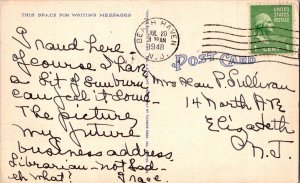 THIS SPACE FOR WRITING MESSAGES
Around here.
Of course I have
a bit of sunburn
can feel it good.
The picture,
my future
business address
Librarian - not bad
eh what? Grace.
BEACH HAVEN
JUL 20
9 AM
1948
N.J.
CENT
POST CARD
Mrs Jean P Sullivan
14 North Ave
Elizabeth
N.J.